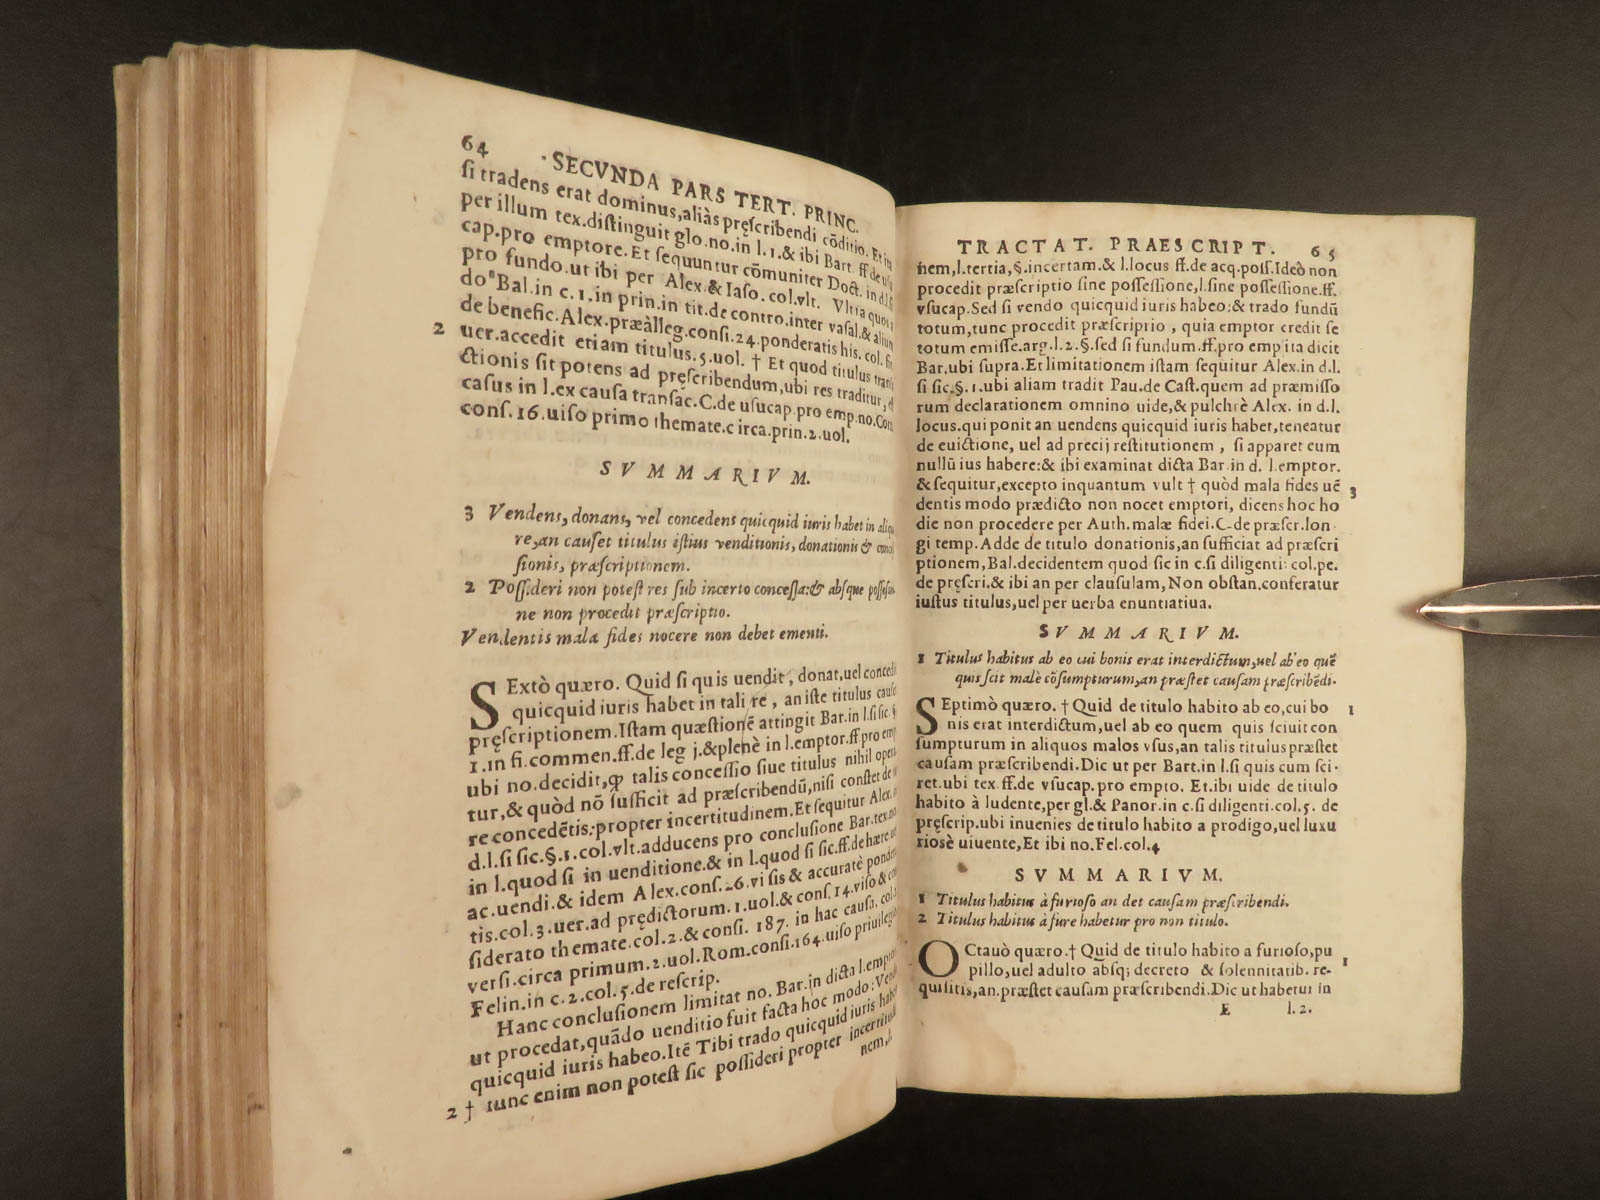 64 SECVNDA PARS TERT. PRINC.
si tradens erat dominus,aliàs pręscribendi cōditio. Et ita
per illum tex.distinguit glo.no.in l.1.& ibi Bart. ff de
cap.pro emptore. Et sequuntur cōmuniter Doct. in d.l.
pro fundo.ut ibi per Alex.& Iaso. col.vlt. Vltra
Bal.in c.1.in prin.in tit.de contro.inter vasal.&
de benefic.Alex.præàlleg.consi.24.ponderatis his. col.
2 uer.accedit etiam titulus.5.uol. † Et quod titulus
ctionis sit potens ad pręscribendum,ubi res traditur,
casus in l.ex causa transac.C.de usucap.pro emp.no.
cons.16.uiso primo themate.circa.prin.2.uol.
SVMMARIVM.
3 Vendens, donans, vel concedens quicquid iuris habet in
re,an causet titulus istius venditionis, donationis &
sionis, præscriptionem.
2 Possideri non potest res sub incerto concessa:& absque
ne non procedit præscriptio.
Vendentis mala fides nocere non debet ementi.
SExtò quæro. Quid si quis uendit, donat,uel
quicquid iuris habet in tali re, an iste titulus
pręscriptionem.Istam quæstionē attingit Bar.in l.si sic.
1.in fi.commen.ff.de leg j.&plenè in l.emptor.ff pro
ubi no.decidit,ꝙ talis concessio siue titulus nihil
tur,& quòd nō sufficit ad præscribendū,nisi constet de
re concedētis:propter incertitudinem.Et sequitur Alex.
d.l.si sic.§.1.col.vlt.adducens pro conclusione Bar.
in l.quod si in uenditione.& in l.quod si sic.ff.de hære
ac.uendi.& idem Alex.cons.26.visis & accuratè
tis.col.3.uer.ad prędictorum.1.uol.& cons.14.viso &
siderato themate.col.2.& consi. 187. in hac causa.
versi.circa primum.2.uol.Rom.consi.164.uiso
Felin.in c.2.col.5.de rescrip.
Hanc conclusionem limitat no. Bar.in dicta l.
ut procedat,quādo uenditio fuit facta hoc modo:
quicquid iuris habeo.Itē Tibi trado quicquid iuris
2 † tunc enim non potest sic possideri propter
nem,l.
TRACTAT. PRAESCRIPT. 65
nem,l.tertia,§.incertam.& l.locus ff.de acq.poss.Ideò non
procedit præscriptio sine possessione,l.sine possessione.ff.
vsucap.Sed si vendo quicquid iuris habeo:& trado fundū
totum,tunc procedit præscriptio , quia emptor credit se
totum emisse.arg.l.2.§.sed si fundum.ff.pro emp ita dicit
Bar.ubi supra.Et limitationem istam sequitur Alex.in d.l.
si sic.§.1.ubi aliam tradit Pau.de Cast.quem ad præmisso
rum declarationem omnino uide,& pulchrè Alex. in d.l.
locus.qui ponit an uendens quicquid iuris habet,teneatur
de euictione, uel ad precij restitutionem , si apparet eum
nullū ius habere:& ibi examinat dicta Bar.in d. l.emptor.
& sequitur,excepto inquantum vult † quòd mala fides uē 3
dentis modo prædicto non nocet emptori, dicens hoc ho
die non procedere per Auth.malæ fidei.C.de præscr.lon-
gi temp. Adde de titulo donationis,an sufficiat ad præscri
ptionem, Bal.decidentem quod sic in c.si diligenti: col.pe.
de pręscri.& ibi an per clausulam, Non obstan.conferatur
iustus titulus,uel per uerba enuntiatiua.
SVMMARIVM.
1 Titulus habitus ab eo cui bonis erat interdictum,uel ab eo quē
quis scit malè cōsumpturum,an præstet causam præscribēdi.
SEptimò quæro. † Quid de titulo habito ab eo,cui bo 1
nis erat interdictum,uel ab eo quem quis sciuit con
sumpturum in aliquos malos vsus,an talis titulus præstet
causam præscribendi.Dic ut per Bart.in l.si quis cum sci-
ret.ubi tex.ff.de vsucap.pro empto. Et.ibi uide de titulo
habito à ludente,per gl.& Panor.in c.si diligenti.col.5. de
pręscrip.ubi inuenies de titulo habito a prodigo,uel luxu
riosè uiuente, Et ibi no.Fel.col.4
SVMMARIVM.
1 Titulus habitus à furioso an det causam præscribendi.
2 Titulus habitus à fure habetur pro non titulo.
OCtauò quæro.† Quid de titulo habito a furioso,pu 1
pillo,uel adulto absq; decreto & solennitatib. re-
quisitis,an.præstet causam præscribendi.Dic ut habetur in
E l.2.